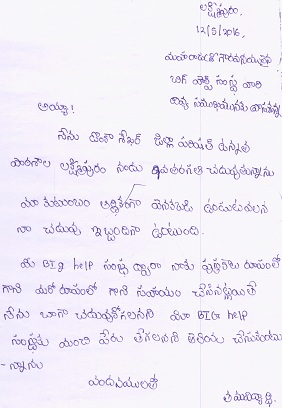 లక్ష్మీపురం,
12/5/2016,
మహారాజశ్రీ గౌరవనీయులైన
బిగ్ హెల్ప్ సంస్థ వారి
దివ్య సముఖమునకు వ్రాయునది
అయ్యా!
నేను శేఖర్ జిల్లా పరిషత్ ఉన్నత
పాఠశాల లక్ష్మీపురం నందు వతరగతి చదువుతున్నాను
మా కుటుంబం ఆర్థికంగా వెనకబడి ఉండుటవలన
నా చదువు ఇబ్బందిగా ఉంటుంది.
మీ BIg help సంస్థ ద్వారా నాకు పుస్తకాల రూపంలో
గాని మరే రూపంలో గాని సహాయం చేసినట్లయితే
నేను బాగా చదువుకోగలనని మీ BIG help
సంస్థకు మంచి పేరు తేగలనని తెలియ చేసుకుంటు
- న్నాను
వందనములతో
తమ విద్యార్థి.